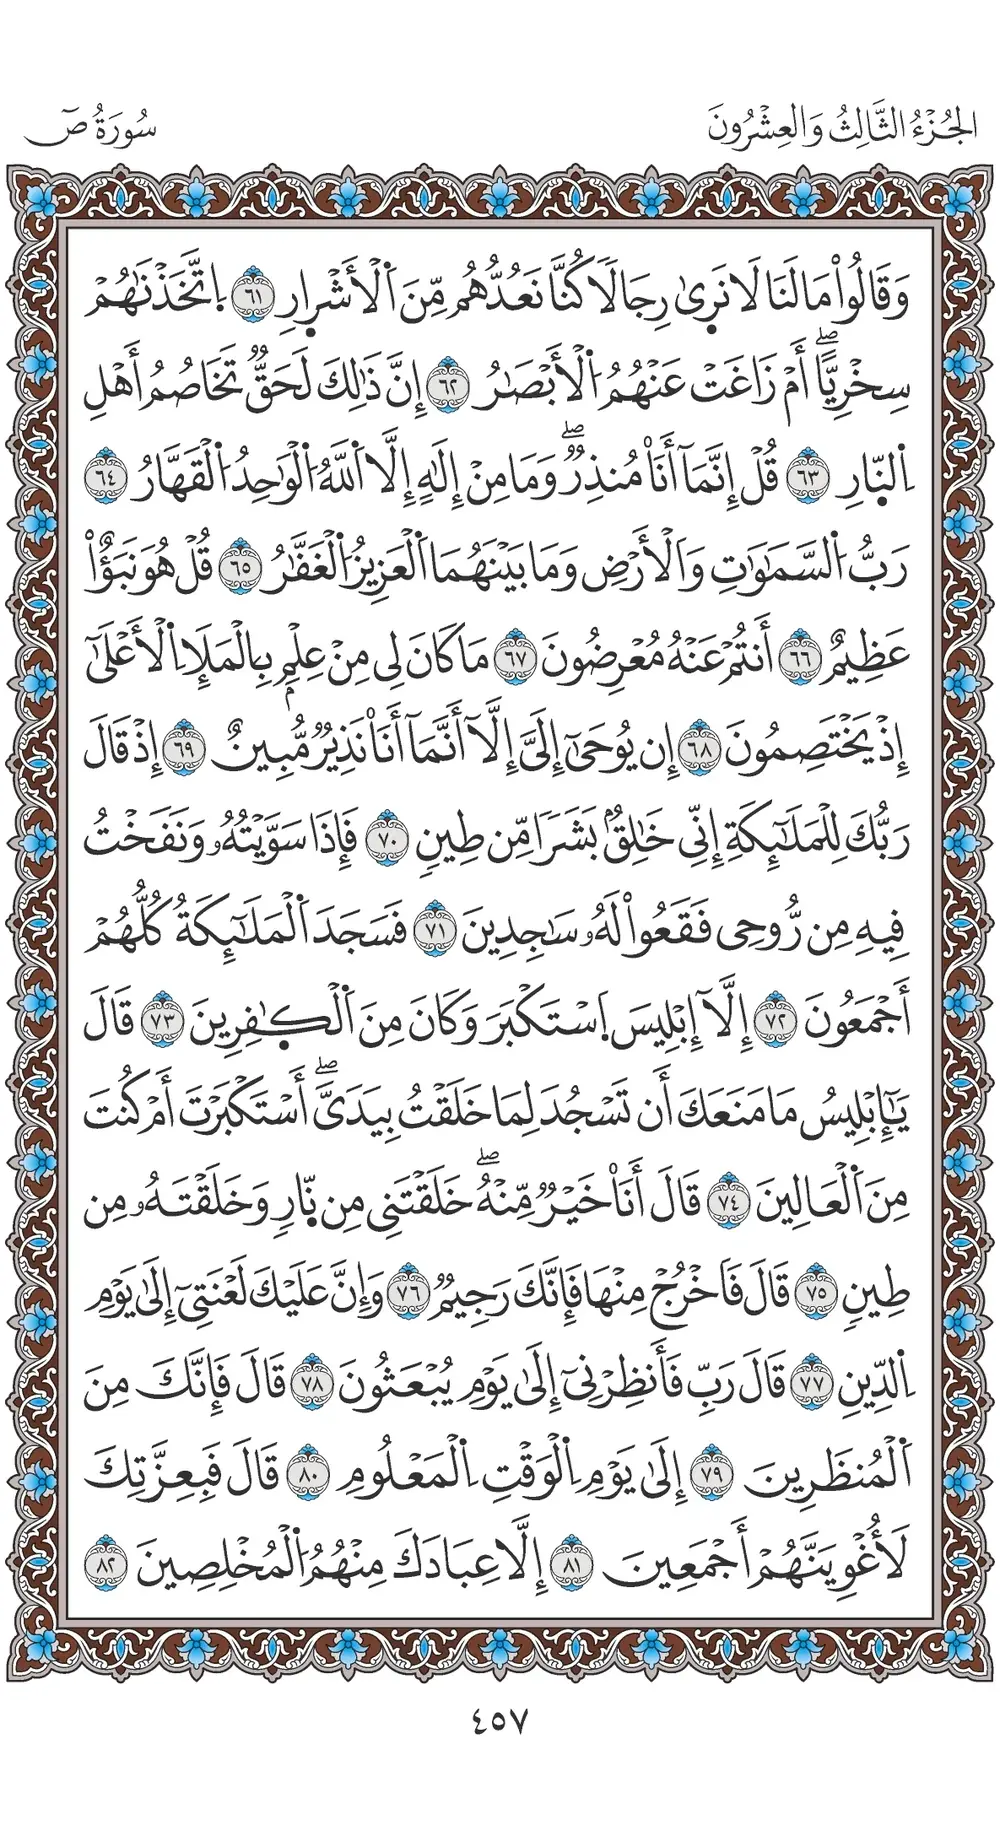 الجُزْءُ الثَّالِثُ وَالعِشْرُونَ
سُورَةُ صٓ
وَقَالُواْ مَا لَنَا لَا نَرٜىٰ رِجَالًا كُنَّا نَعُدُّهُم مِّنَ اَ۬لْأَشْرٜارِ ٦١ اِ۪تَّخَذْنَٰهُمْ
سِخْرِيًّاۖ أَمْ زَاغَتْ عَنْهُمُ اُ۬لْأَبْصَٰرُ ٦٢ إِنَّ ذَٰلِكَ لَحَقّٞ تَخَاصُمُ أَهْلِ
اِ۬لنّٜارِ ٦٣ قُلْ إِنَّمَآ أَنَا۠ مُنذِرٞۖ وَمَا مِنْ إِلَٰهٍ إِلَّا اَ۬للَّهُ اُ۬لْوَٰحِدُ اُ۬لْقَهَّارُ ٦٤
رَبُّ اُ۬لسَّمَٰوَٰتِ وَالْأَرْضِ وَمَا بَيْنَهُمَا اَ۬لْعَزِيزُ اُ۬لْغَفَّٰرُ ٦٥ قُلْ هُوَ نَبَؤٌاْ
عَظِيمٌ ٦٦ أَنتُمْ عَنْهُ مُعْرِضُونَ ٦٧ مَا كَانَ لِي مِنْ عِلْمِۢ بِالْمَلَإِ اِ۬لْأَعْلَىٰٓ
إِذْ يَخْتَصِمُونَ ٦٨ إِن يُوحَىٰٓ إِلَيَّ إِلَّآ أَنَّمَآ أَنَا۠ نَذِيرٞ مُّبِينٌ ٦٩ إِذْ قَالَ
رَبُّكَ لِلْمَلَٰٓئِكَةِ إِنِّي خَٰلِقُۢ بَشَرٗا مِّن طِينٖ ٧٠ فَإِذَا سَوَّيْتُهُۥ وَنَفَخْتُ
فِيهِ مِن رُّوحِي فَقَعُواْ لَهُۥ سَٰجِدِينَ ٧١ فَسَجَدَ اَ۬لْمَلَٰٓئِكَةُ كُلُّهُمْ
أَجْمَعُونَ ٧٢ إِلَّآ إِبْلِيسَ اَ۪سْتَكْبَرَ وَكَانَ مِنَ اَ۬لْكٰٜفِرِينَ ٧٣ قَالَ
يَٰٓإِبْلِيسُ مَا مَنَعَكَ أَن تَسْجُدَ لِمَا خَلَقْتُ بِيَدَيَّۖ أَسْتَكْبَرْتَ أَمْ كُنتَ
مِنَ اَ۬لْعَالِينَ ٧٤ قَالَ أَنَا۠ خَيْرٞ مِّنْهُۖ خَلَقْتَنِي مِن نّٜارٖ وَخَلَقْتَهُۥ مِن
طِينٖ ٧٥ قَالَ فَاخْرُجْ مِنْهَا فَإِنَّكَ رَجِيمٞ ٧٦ وَإِنَّ عَلَيْكَ لَعْنَتِيٓ إِلَىٰ يَوْمِ
اِ۬لدِّينِ ٧٧ قَالَ رَبِّ فَأَنظِرْنِيٓ إِلَىٰ يَوْمِ يُبْعَثُونَ ٧٨ قَالَ فَإِنَّكَ مِنَ
اَ۬لْمُنظَرِينَ ٧٩ إِلَىٰ يَوْمِ اِ۬لْوَقْتِ اِ۬لْمَعْلُومِ ٨٠ قَالَ فَبِعِزَّتِكَ
لَأُغْوِيَنَّهُمْ أَجْمَعِينَ ٨١ إِلَّا عِبَادَكَ مِنْهُمُ اُ۬لْمُخْلِصِينَ ٨٢
٤٥٧